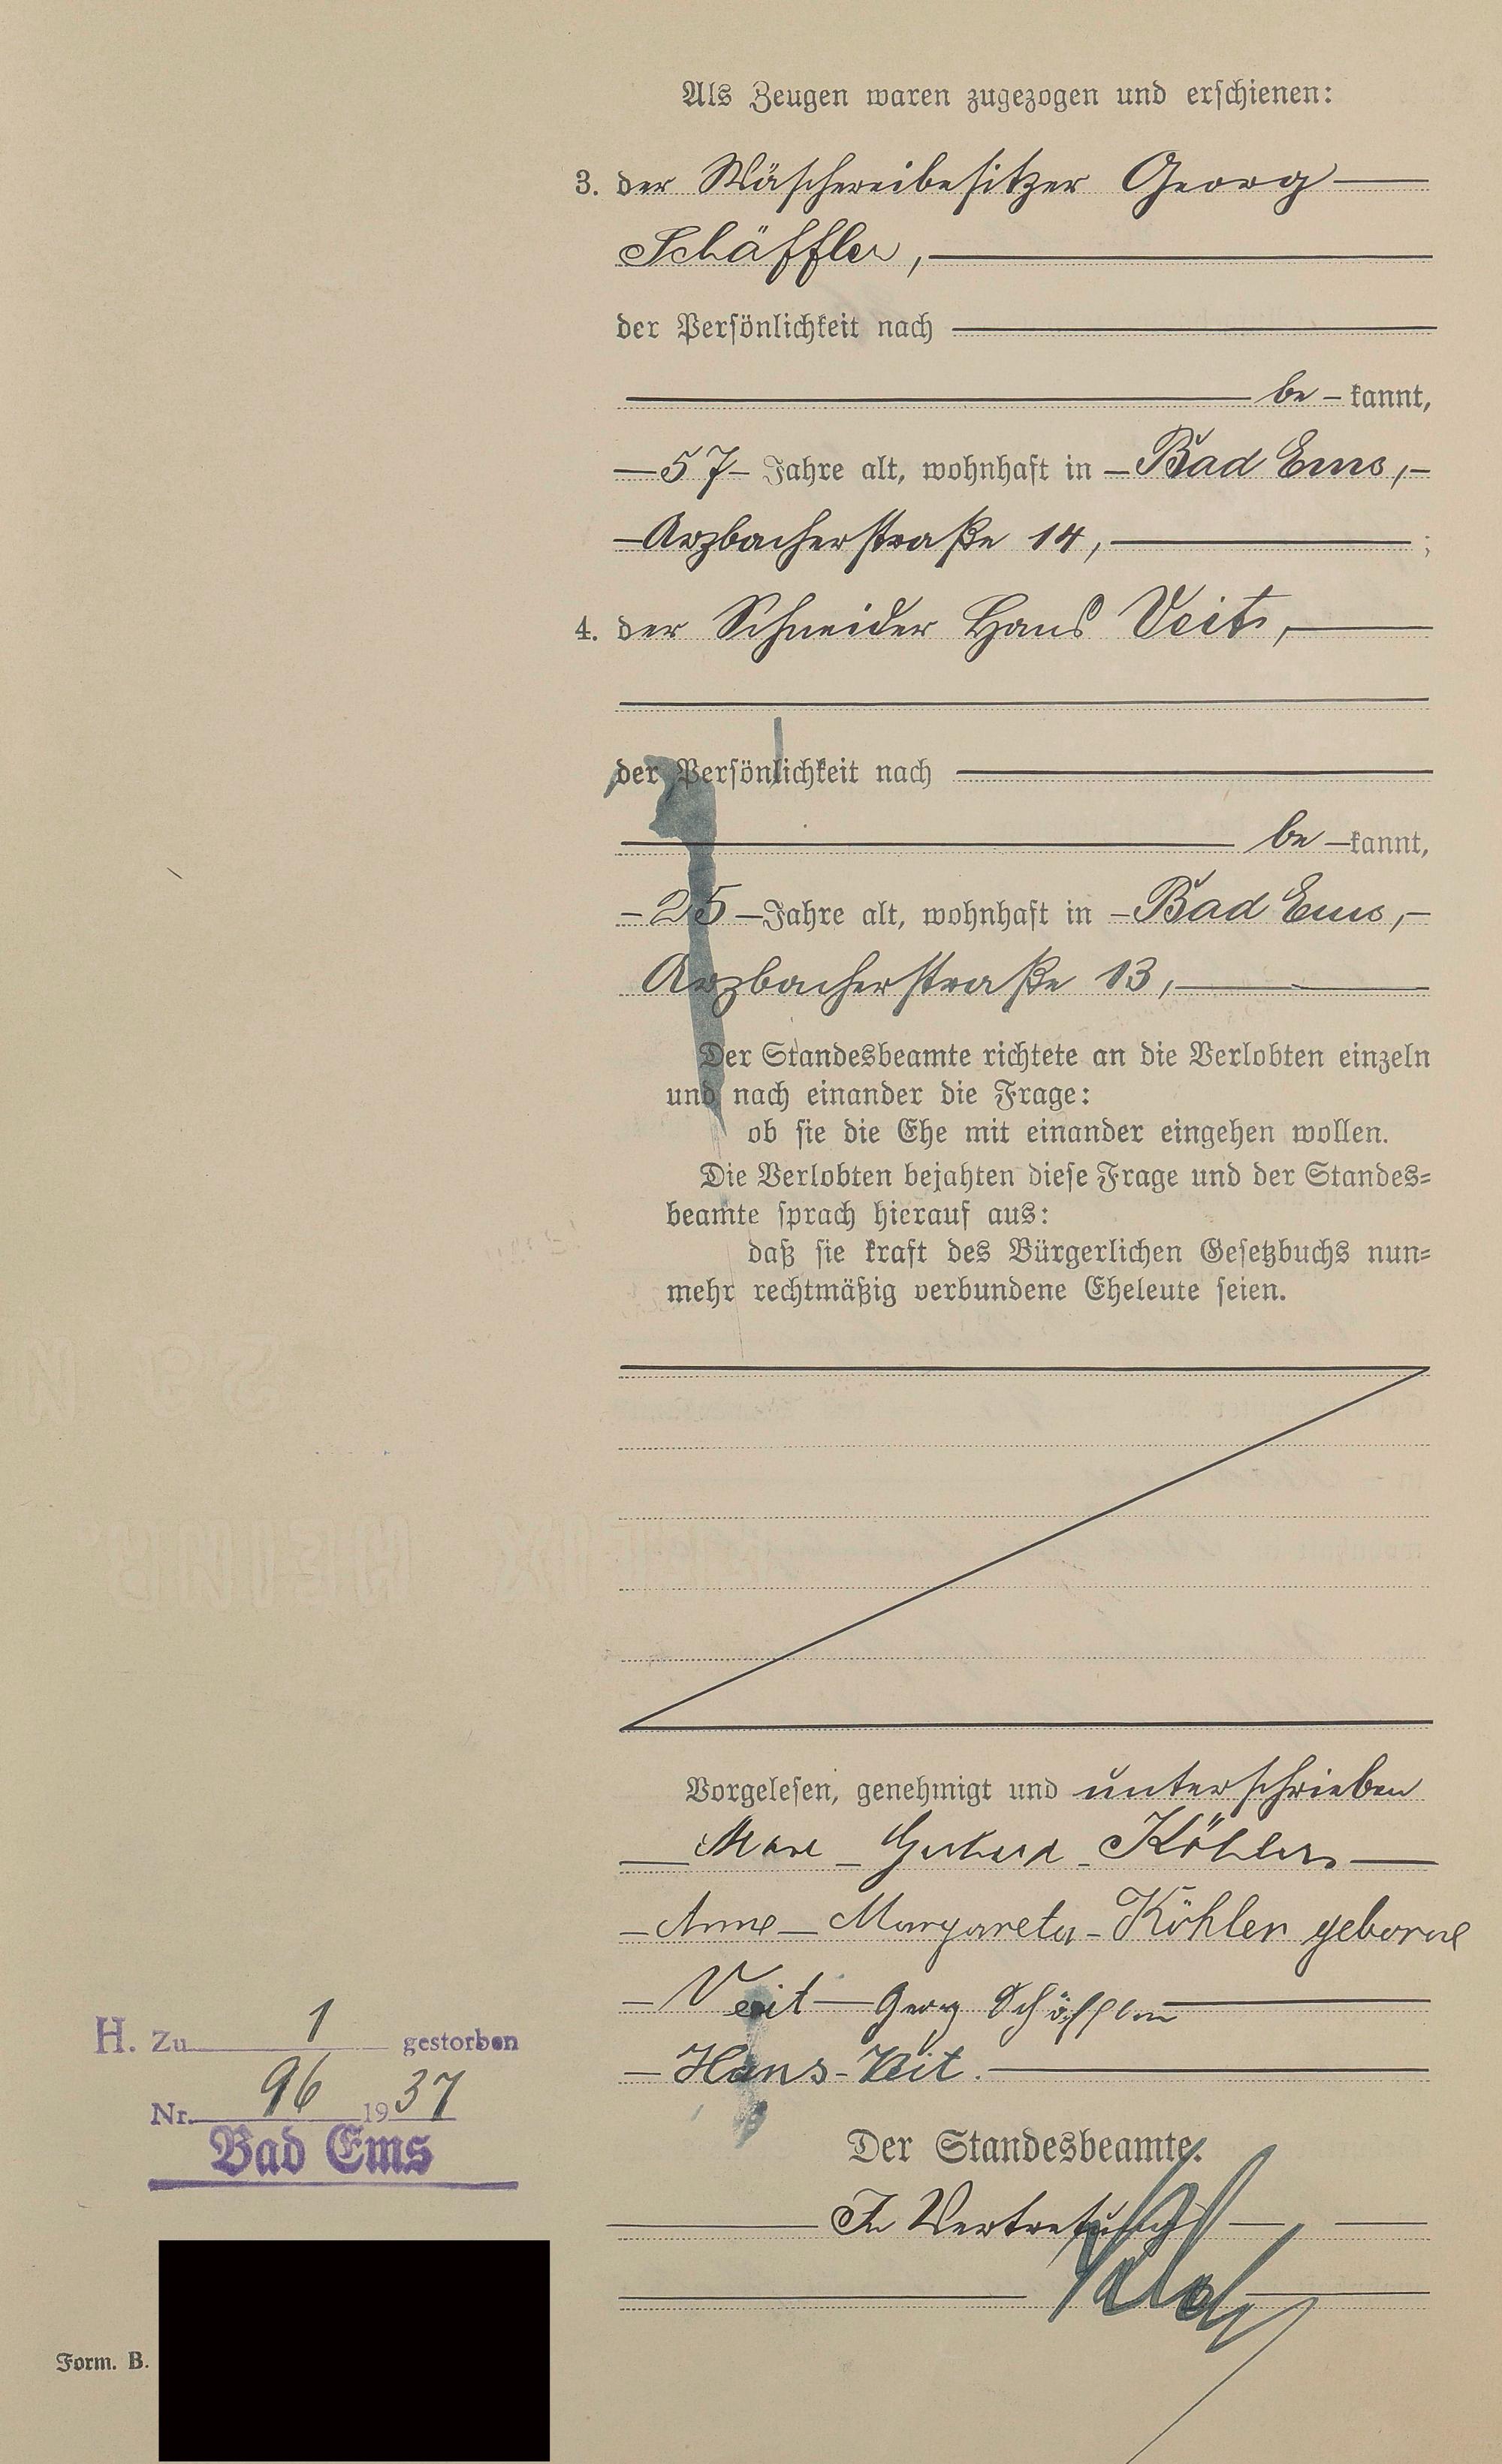 Als Zeugen waren zugezogen und erschienen:
3. der Wäschereibesitzer Georg
Schäffler,
der Persönlichkeit nach
be kannt,
57 Jahre alt, wohnhaft in Bad Ems,
Arzbacherstraße 14, ;
4. der Schneider Hans Veit,
der Persönlichkeit nach
be kannt,
25 Jahre alt, wohnhaft in Bad Ems,
Arzbacherstraße 13,
Der Standesbeamte richtete an die Verlobten einzeln
und nach einander die Frage:
ob sie die Ehe mit einander eingehen wollen.
Die Verlobten bejahten diese Frage und der Standes=
beamte sprach hierauf aus:
daß sie kraft des Bürgerlichen Gesetzbuchs nun=
mehr rechtmäßig verbundene Eheleute seien.
Vorgelesen, genehmigt und unterschrieben
Gerhard Köhler
Anna Margareta Köhler geborne
Veit Georg Schäffler
Hans Veit.
H. Zu 1 gestorben
Nr. 96 1937
Bad Ems
Der Standesbeamte.
In Vertretung
Form. B.